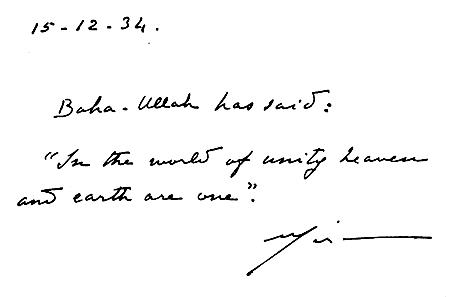 15-12-34.
Baha-Ullah has said:
"In the world of unity heaven
and earth are one".